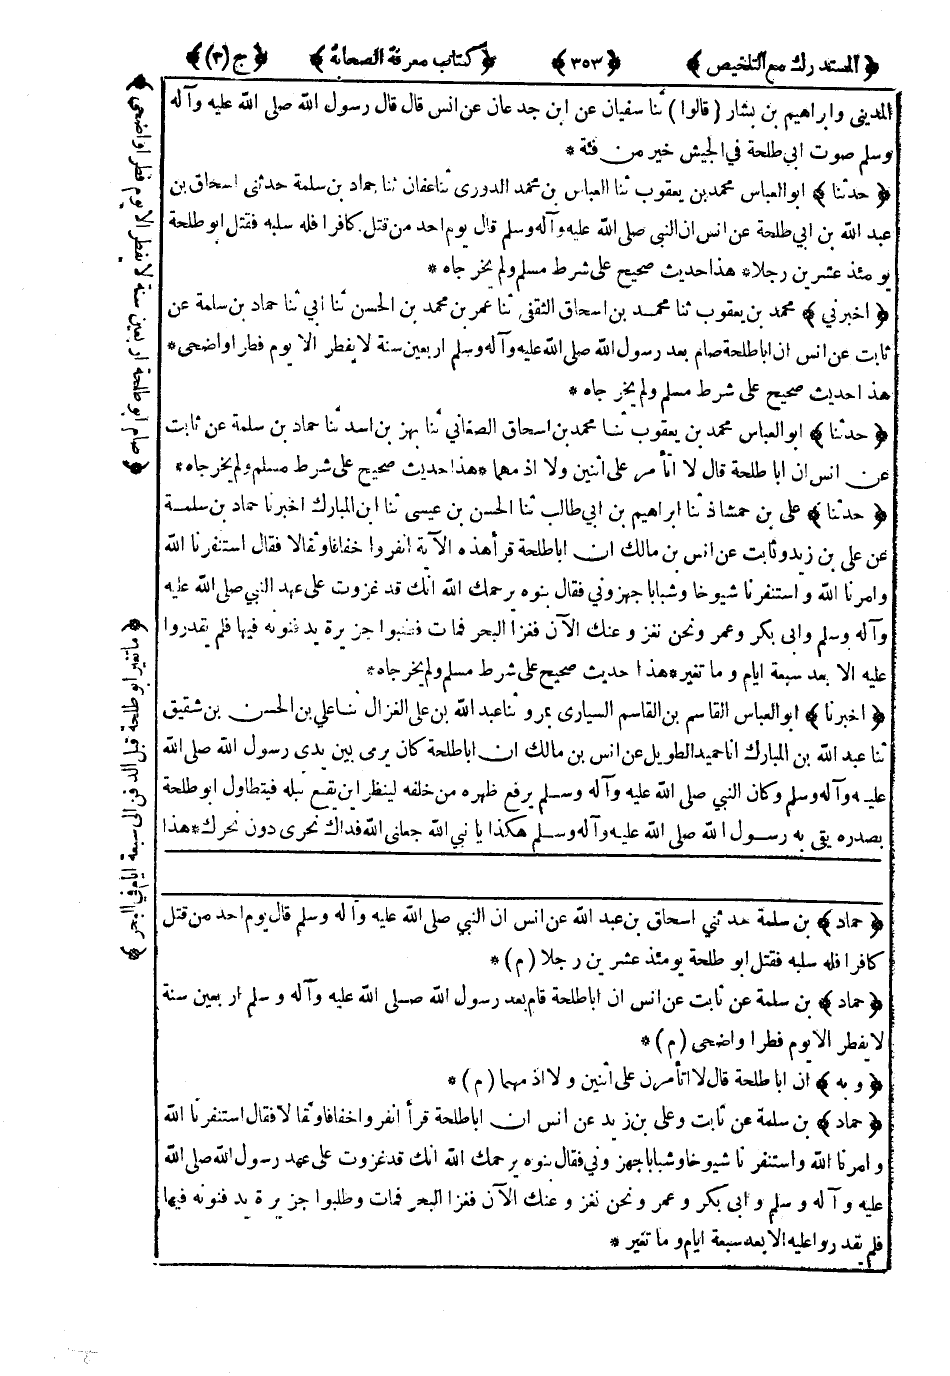 ﴿المستدرك مع التلخيص﴾ ﴿٣٥٣﴾ ﴿كتاب معرفة الصحابة﴾ ﴿ج (٣)﴾
المدينى وابراهيم بن بشار (قالوا) ثنا سفيان عن ابن جدعان عن انس قال قال رسول الله صلى الله عليه وآله
وسلم صوت ابي طلحة في الجيش خير من فئة *
﴿حدثنا﴾ ابو العباس محمد بن يعقوب ثنا العباس بن محمد الدورى ثنا عفان ثنا حماد بن سلمة حدثنى اسحاق بن
عبد الله بن ابي طلحة عن انس ان النبي صلى الله عليه وآله وسلم قال يوم احد من قتل كافرا فله سلبه فقتل ابو طلحة
يومئذ عشرين رجلا * هذا حديث صحيح على شرط مسلم ولم يخرجاه *
﴿اخبرني﴾ محمد بن يعقوب ثنا محمد بن اسحاق الثقفي ثنا عمر بن محمد بن الحسن ثنا أبي ثنا حماد بن سلمة عن
ثابت عن انس ان ابا طلحة صام بعد رسول الله صلى الله عليه وآله وسلم اربعين سنة لا يفطر الا يوم فطر او اضحى *
هذا حديث صحيح على شرط مسلم ولم يخرجاه *
﴿حدثنا﴾ ابو العباس محمد بن يعقوب ثنا محمد بن اسحاق الصغاني ثنا بهز بن اسد ثنا حماد بن سلمة عن ثابت
عن انس ان ابا طلحة قال لا اتأمر على اثنين ولا اذمهما * هذا حديث صحيح على شرط مسلم ولم يخرجاه *
﴿حدثنا﴾ على بن حمشاذ ثنا ابراهيم بن ابي طالب ثنا الحسن بن عيسى ثنا ابن المبارك اخبرنا حماد بن سلمة
عن على بن زيد وثابت عن انس بن مالك ان ابا طلحة قرأ هذه الآية انفروا خفافا وثقالا فقال استنفرنا الله
وامرنا الله واستنفرنا شيوخا وشبابا جهزوني فقال بنوه يرحمك الله انك قد غزوت على عهد النبي صلى الله عليه
وآله وسلم وابي بكر وعمر ونحن نغزو عنك الآن فغزا البحر فمات فطلبوا جزيرة يدفنونه فيها فلم يقدروا
عليه الا بعد سبعة ايام وما تغير * هذا حديث صحيح على شرط مسلم ولم يخرجاه *
﴿اخبرنا﴾ ابو العباس القاسم بن القاسم السيارى بمرو ثنا عبد الله بن على الغزال ثنا على بن الحسن بن شقيق
ثنا عبد الله بن المبارك انا حميد الطويل عن انس بن مالك ان ابا طلحة كان يرمى بين يدى رسول الله صلى الله
عليه وآله وسلم وكان النبي صلى الله عليه وآله وسلم يرفع ظهره من خلفه لينظر اين يقع نبله فيتطاول ابو طلحة
بصدره يقى به رسول الله صلى الله عليه وآله وسلم هكذا يا نبي الله جعلنى الله فداك نحرى دون نحرك * هذا
﴿حماد﴾ بن سلمة حدثني اسحاق بن عبد الله عن انس ان النبي صلى الله عليه وآله وسلم قال يوم احد من قتل
كافرا فله سلبه فقتل ابو طلحة يومئذ عشرين رجلا (م) *
﴿حماد﴾ بن سلمة عن ثابت عن انس ان ابا طلحة قام بعد رسول الله صلى الله عليه وآله وسلم اربعين سنة
لا يفطر الا يوم فطر او اضحى (م) *
﴿وبه﴾ ان ابا طلحة قال لا اتأمرن على اثنين ولا اذمهما (م) *
﴿حماد﴾ بن سلمة عن ثابت وعلى بن زيد عن انس ان ابا طلحة قرأ انفروا خفافا وثقالا فقال استنفرنا الله
وامرنا الله واستنفرنا شيوخا وشبابا جهزوني فقال بنوه يرحمك الله انك قد غزوت على عهد رسول الله صلى الله
عليه وآله وسلم وابى بكر وعمر ونحن نغزو عنك الآن فغزا البحر فمات وطلبوا جزيرة يدفنونه فيها
فلم يقدروا عليه الا بعد سبعة ايام وما تغير *
﴿صام ابو طلحة اربعين سنة لا يفطر الا يوم فطر او اضحى﴾
﴿ما تغير ابو طلحة قبل الدفن الى سبعة ايام في البحر﴾